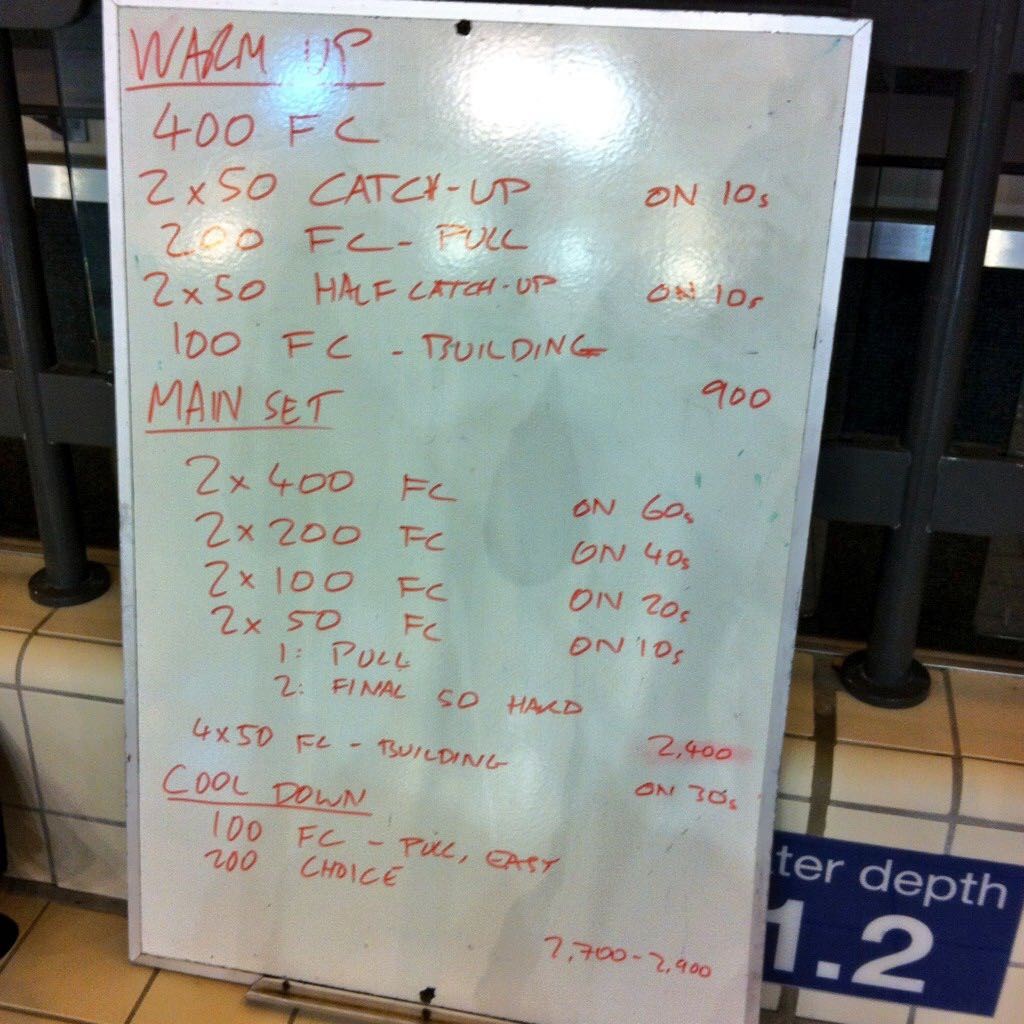 WARM UP
400 FC
2x50 CATCH-UP ON 10s
200 FC - PULL
2x50 HALF CATCH-UP ON 10s
100 FC - BUILDING
900
MAIN SET
2x400 FC ON 60s
2x200 FC ON 40s
2x100 FC ON 20s
2x50 FC ON 10s
1: PULL
2: FINAL 50 HARD
2,400
4x50 FC - BUILDING ON 30s
COOL DOWN
100 FC - PULL, EASY
200 CHOICE
2,700-2,900
ter depth
1.2